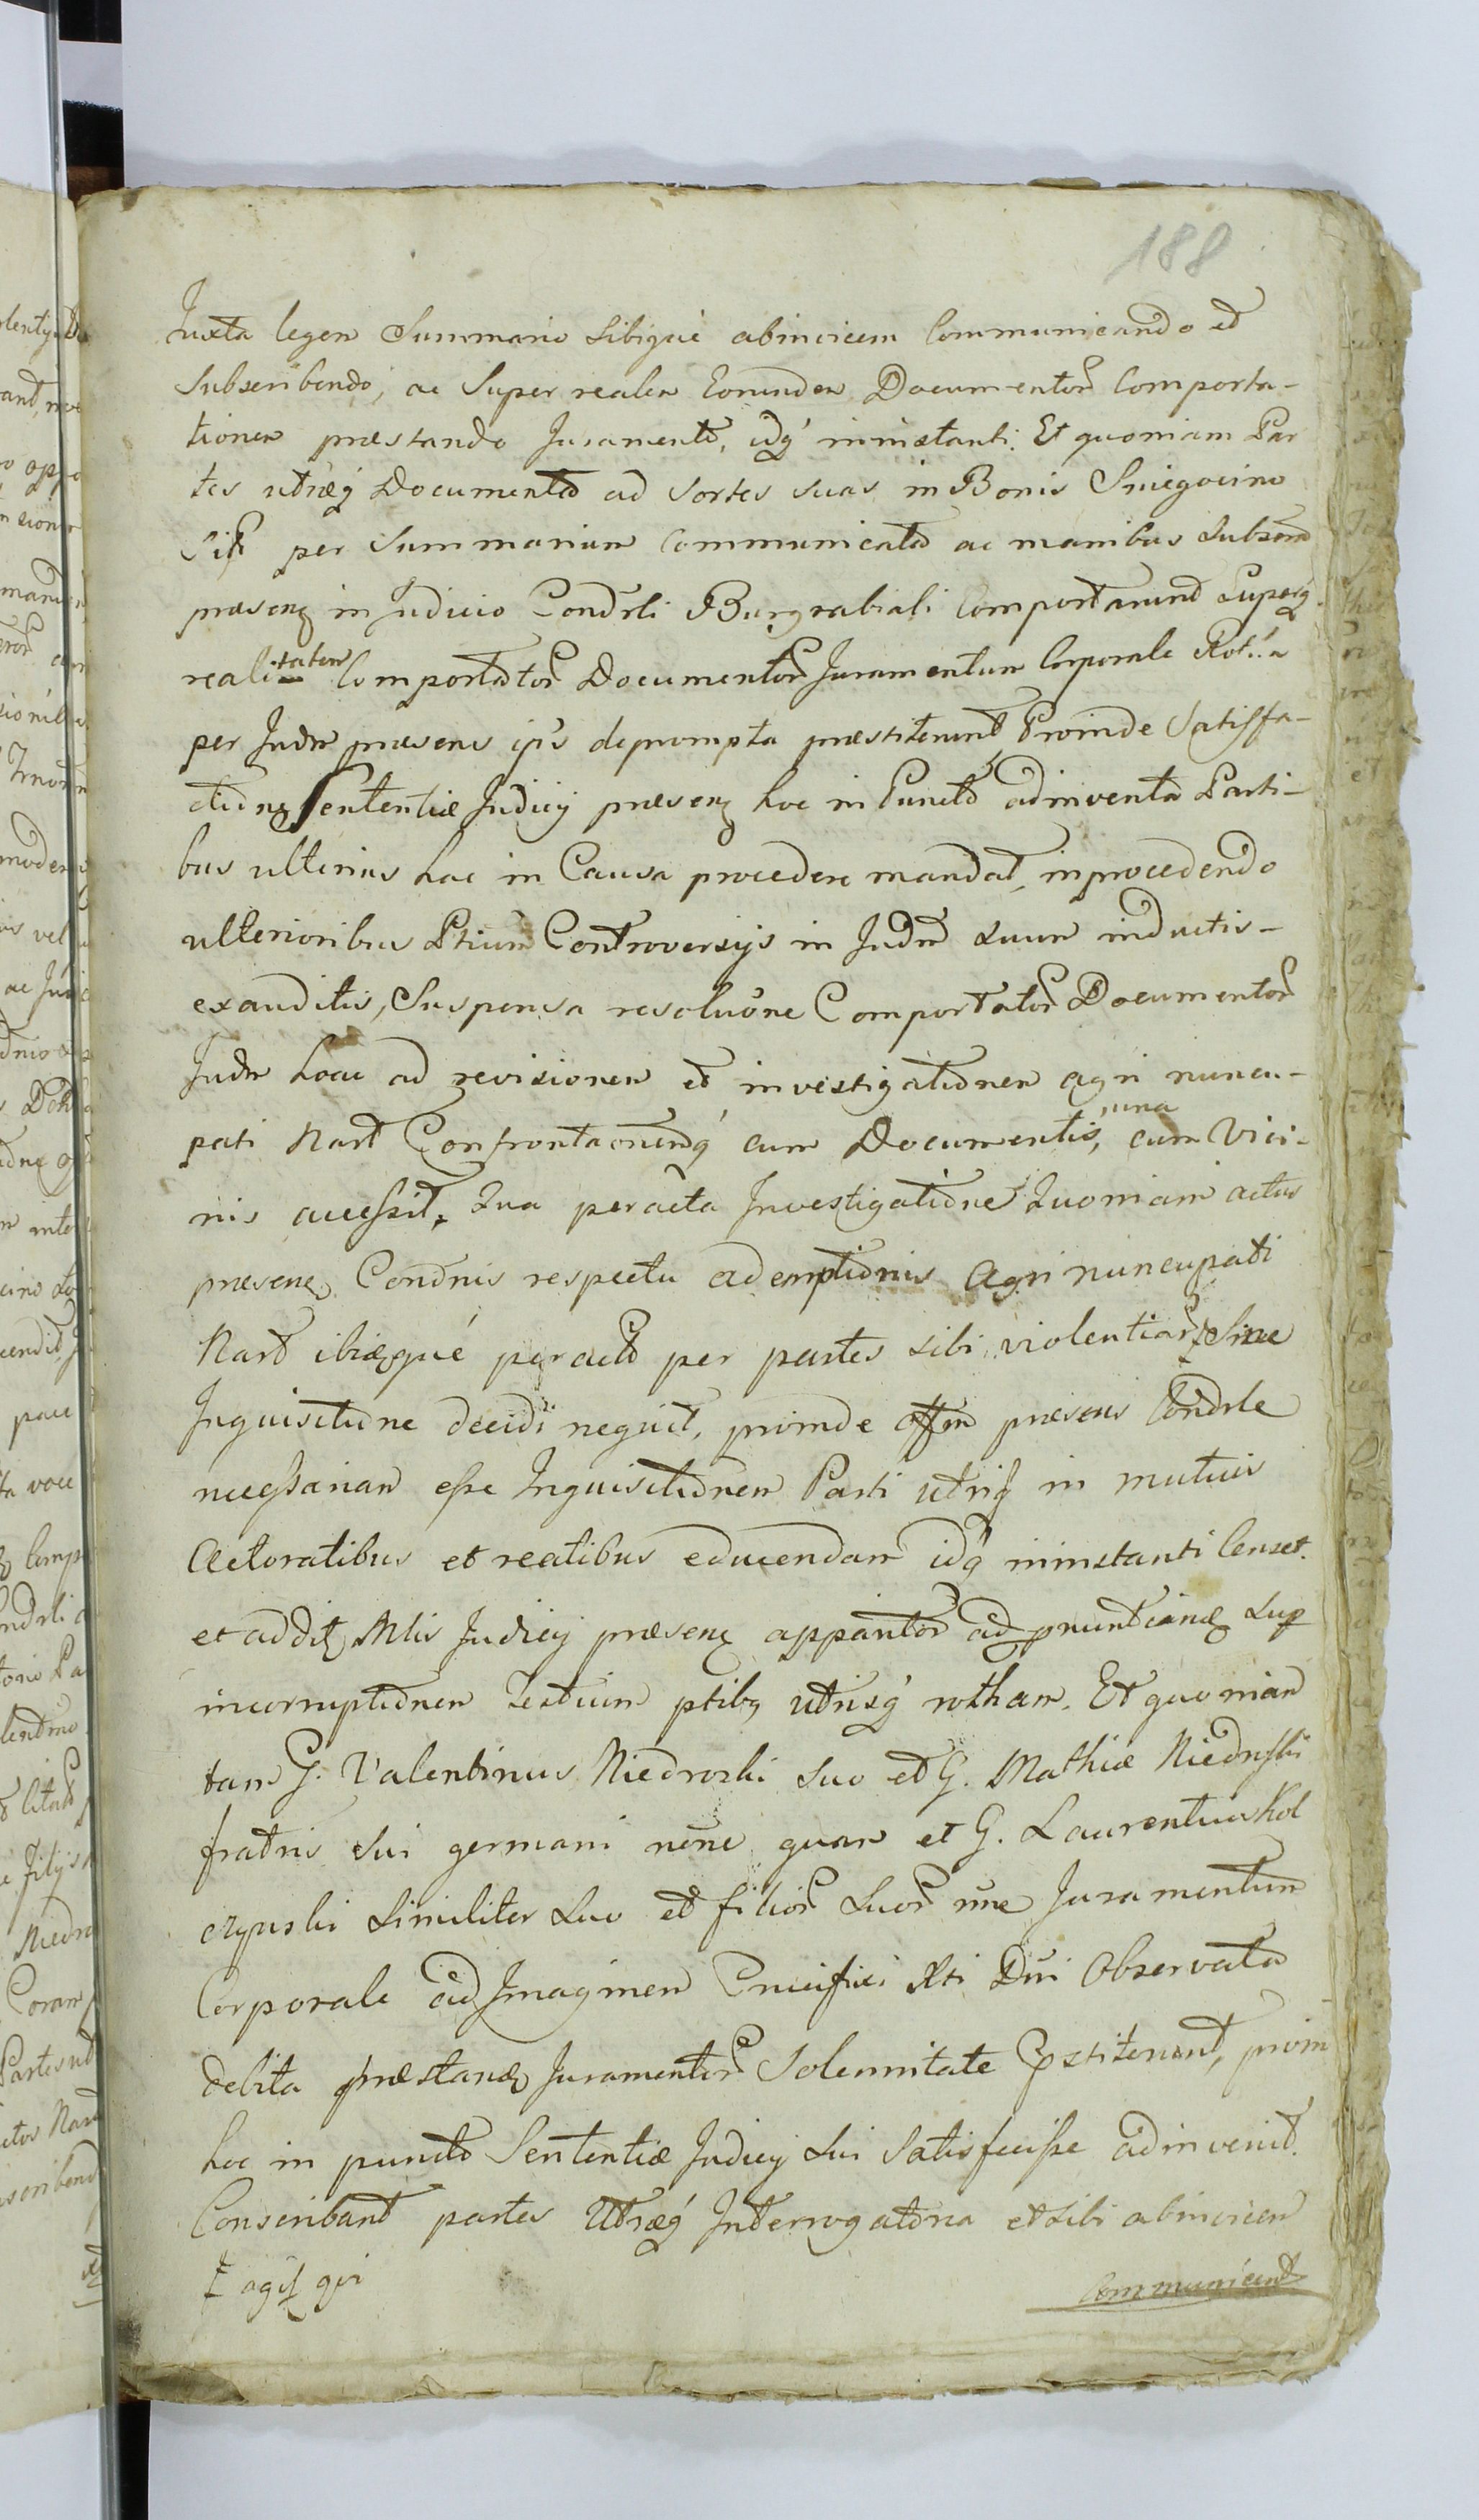 188
Juxta legem Summario sibique abinvicem Communicando et
Subscribendo, ac Super realem Eorundem Documentor Comporta-
tionem præstando Juramento, idq́ ininstanti. Et quoniam Par
tes utræq́ Documenta ad sortes suas in Bonis Sniegocino
Sit per Summarium Communicata ac manibus Subscrip
præsenꝫ in Judicio Condrli Burgrabiali Comportarunt Superq́
realitatem Comportator Documentor Juramentum Corporale Rotha
per Judm præsens ip̄s deprompta præstiterunt, Proinde Satisfa-
ctionꝫ Sententiæ Judicij præsenꝫ hoc in Puncto adinventa Parti-
bus ulterius hac in Causa procedere mandat, inprocedendo
ulterioribus Ptium Controversijs in Judm suum inductis-
exauditis, Suspensa resoluõne Comportator Documentor
Judm hocce ad revisionem et investigationem agri nuncu-
pati Nart Confrontaonemq́ cum Documentis, una cum Vici-
nis accessit, Qua peracta Investigatione Quoniam actus
præsenꝫ Condnis respectu ademptionis Agri nuncupati
Nart ibiæqué peractõ per partes sibi violentiar, Sine
Inquisitione decidi nequit, proinde Offm præsens Condrle
necessariam esse Inquisitionem Parti utriq́ in mutuis
Actoratibus et reatibus educendam idq́ ininstanti Censet.
et addit Mlis Judicij præsenꝫ appantor ad pnuntianꝫ Sup
incorruptionem Testium ptibꝫ utrisq́ rotham. Et quoniam
tam G. Valentinus Niedroski suo et G. Mathiæ Niedrski
fratris sui germani nõne quam et G. Laurentius Kol
czynski Similiter suo et filior suor nñe Juramentum
Corporale ad Imaginem Crucifixi Xti Dñi Observata
debita præstanꝫ Juramentor Solennitate Pstiterunt, proin
hoc in puncto Sententiæ Judicij sui Satisfecisse adinvenit.
Conscribant partes Utræq́ Interrogatoria et sibi abinvicem
Communicent